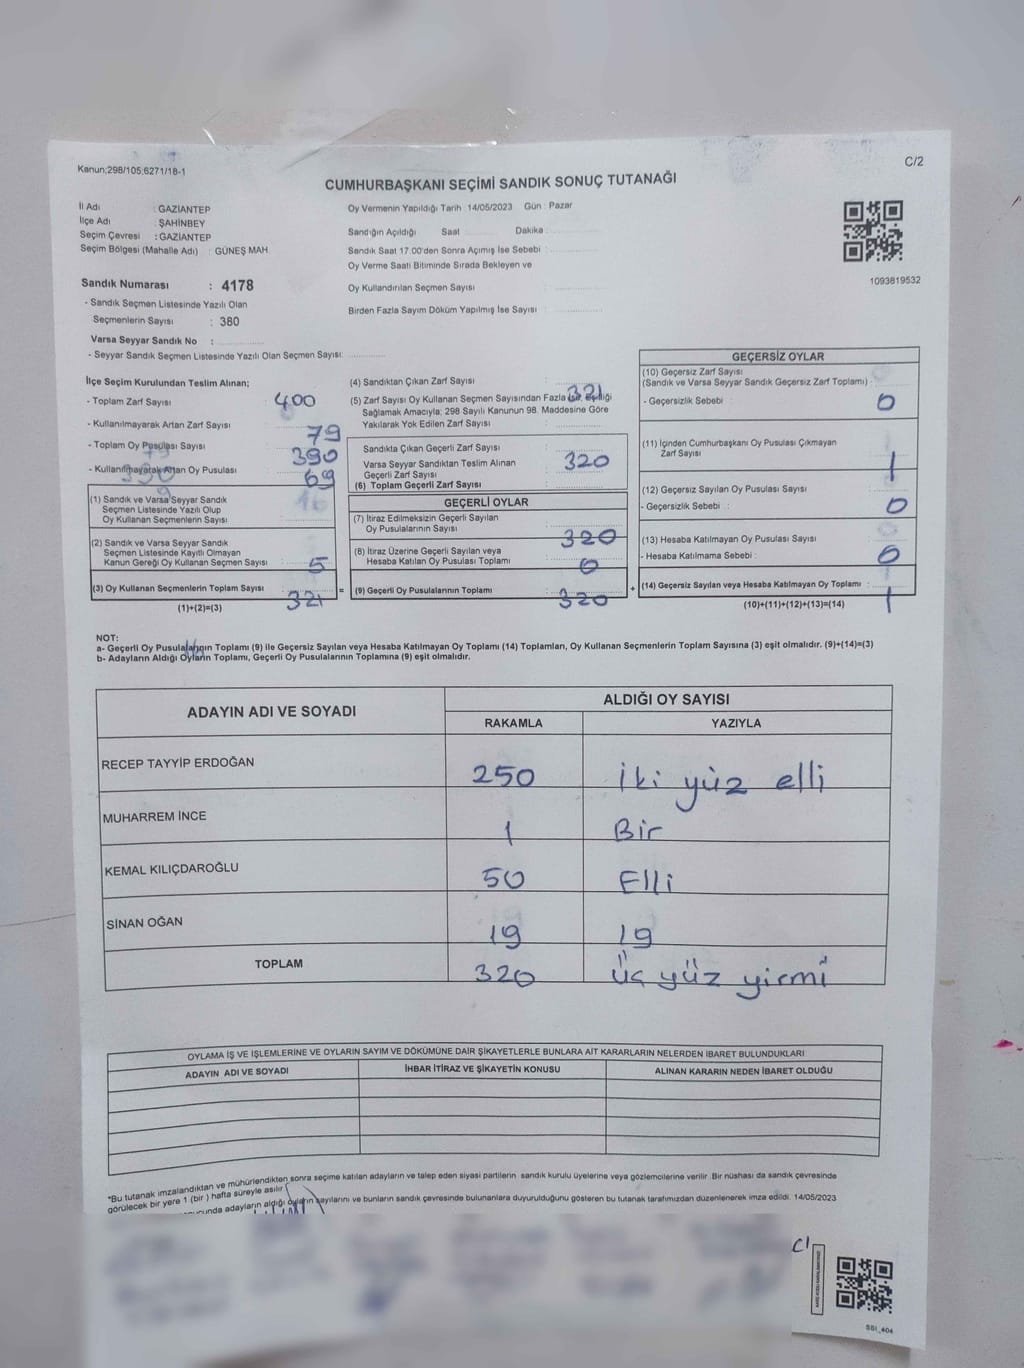 Kanun;298/105;6271/18-1
C/2
CUMHURBAŞKANI SEÇİMİ SANDIK SONUÇ TUTANAĞI
İl Adı : GAZİANTEP
İlçe Adı : ŞAHİNBEY
Seçim Çevresi : GAZİANTEP
Seçim Bölgesi (Mahalle Adı) : GÜNEŞ MAH.
Sandık Numarası : 4178
- Sandık Seçmen Listesinde Yazılı Olan
Seçmenlerin Sayısı : 380
Varsa Seyyar Sandık No :
- Seyyar Sandık Seçmen Listesinde Yazılı Olan Seçmen Sayısı:
Oy Vermenin Yapıldığı Tarih 14/05/2023 Gün : Pazar
Sandığın Açıldığı Saat Dakika :
Sandık Saat 17:00'den Sonra Açımış İse Sebebi :
Oy Verme Saati Bitiminde Sırada Bekleyen ve
Oy Kullandırılan Seçmen Sayısı :
Birden Fazla Sayım Döküm Yapılmış İse Sayısı :
1093819532
İlçe Seçim Kurulundan Teslim Alınan;
- Toplam Zarf Sayısı : 400
- Kullanılmayarak Artan Zarf Sayısı : 79
- Toplam Oy Pusulası Sayısı : 390
- Kullanılmayarak Artan Oy Pusulası : 69
(1) Sandık ve Varsa Seyyar Sandık
Seçmen Listesinde Yazılı Olup
Oy Kullanan Seçmenlerin Sayısı
(2) Sandık ve Varsa Seyyar Sandık
Seçmen Listesinde Kayıtlı Olmayan
Kanun Gereği Oy Kullanan Seçmen Sayısı : 5
(3) Oy Kullanan Seçmenlerin Toplam Sayısı : 321 =
(1)+(2)=(3)
(4) Sandıktan Çıkan Zarf Sayısı : 321
(5) Zarf Sayısı Oy Kullanan Seçmen Sayısından Fazla
Sağlamak Amacıyla; 298 Sayılı Kanunun 98. Maddesine Göre
Yakılarak Yok Edilen Zarf Sayısı :
Sandıkta Çıkan Geçerli Zarf Sayısı :
Varsa Seyyar Sandıktan Teslim Alınan 320
Geçerli Zarf Sayısı :
(6) Toplam Geçerli Zarf Sayısı :
GEÇERLİ OYLAR
(7) İtiraz Edilmeksizin Geçerli Sayılan
Oy Pusulalarının Sayısı : 320
(8) İtiraz Üzerine Geçerli Sayılan veya
Hesaba Katılan Oy Pusulası Toplamı : 0
(9) Geçerli Oy Pusulalarının Toplamı : 320 +
GEÇERSİZ OYLAR
(10) Geçersiz Zarf Sayısı
(Sandık ve Varsa Seyyar Sandık Geçersiz Zarf Toplamı) :
- Geçersizlik Sebebi : 0
(11) İçinden Cumhurbaşkanı Oy Pusulası Çıkmayan
Zarf Sayısı : 1
(12) Geçersiz Sayılan Oy Pusulası Sayısı :
- Geçersizlik Sebebi : 0
(13) Hesaba Katılmayan Oy Pusulası Sayısı :
- Hesaba Katılmama Sebebi : 0
(14) Geçersiz Sayılan veya Hesaba Katılmayan Oy Toplamı : 1
(10)+(11)+(12)+(13)=(14)
NOT:
a- Geçerli Oy Pusulalarının Toplamı (9) ile Geçersiz Sayılan veya Hesaba Katılmayan Oy Toplamı (14) Toplamları, Oy Kullanan Seçmenlerin Toplam Sayısına (3) eşit olmalıdır. (9)+(14)=(3)
b- Adayların Aldığı Oyların Toplamı, Geçerli Oy Pusulalarının Toplamına (9) eşit olmalıdır.
ADAYIN ADI VE SOYADI ALDIĞI OY SAYISI
RAKAMLA YAZIYLA
RECEP TAYYİP ERDOĞAN 250 İki yüz elli
MUHARREM İNCE 1 Bir
KEMAL KILIÇDAROĞLU 50 Elli
SİNAN OĞAN 19 19
TOPLAM 320 Üç yüz yirmi
OYLAMA İŞ VE İŞLEMLERİNE VE OYLARIN SAYIM VE DÖKÜMÜNE DAİR ŞİKAYETLERLE BUNLARA AİT KARARLARIN NELERDEN İBARET BULUNDUKLARI
ADAYIN ADI VE SOYADI İHBAR İTİRAZ VE ŞİKAYETİN KONUSU ALINAN KARARIN NEDEN İBARET OLDUĞU
*Bu tutanak imzalandıktan ve mühürlendikten sonra seçime katılan adayların ve talep eden siyasi partilerin sandık kurulu üyelerine veya gözlemcilerine verilir. Bir nüshası da sandık çevresinde
görülecek bir yere 1 (bir ) hafta süreyle asılır.
adayların aldığı oyların sayılarını ve bunların sandık çevresinde bulunanlara duyurulduğunu gösteren bu tutanak tarafımızdan düzenlenerek imza edildi. 14/05/2023
C1
SSI_404